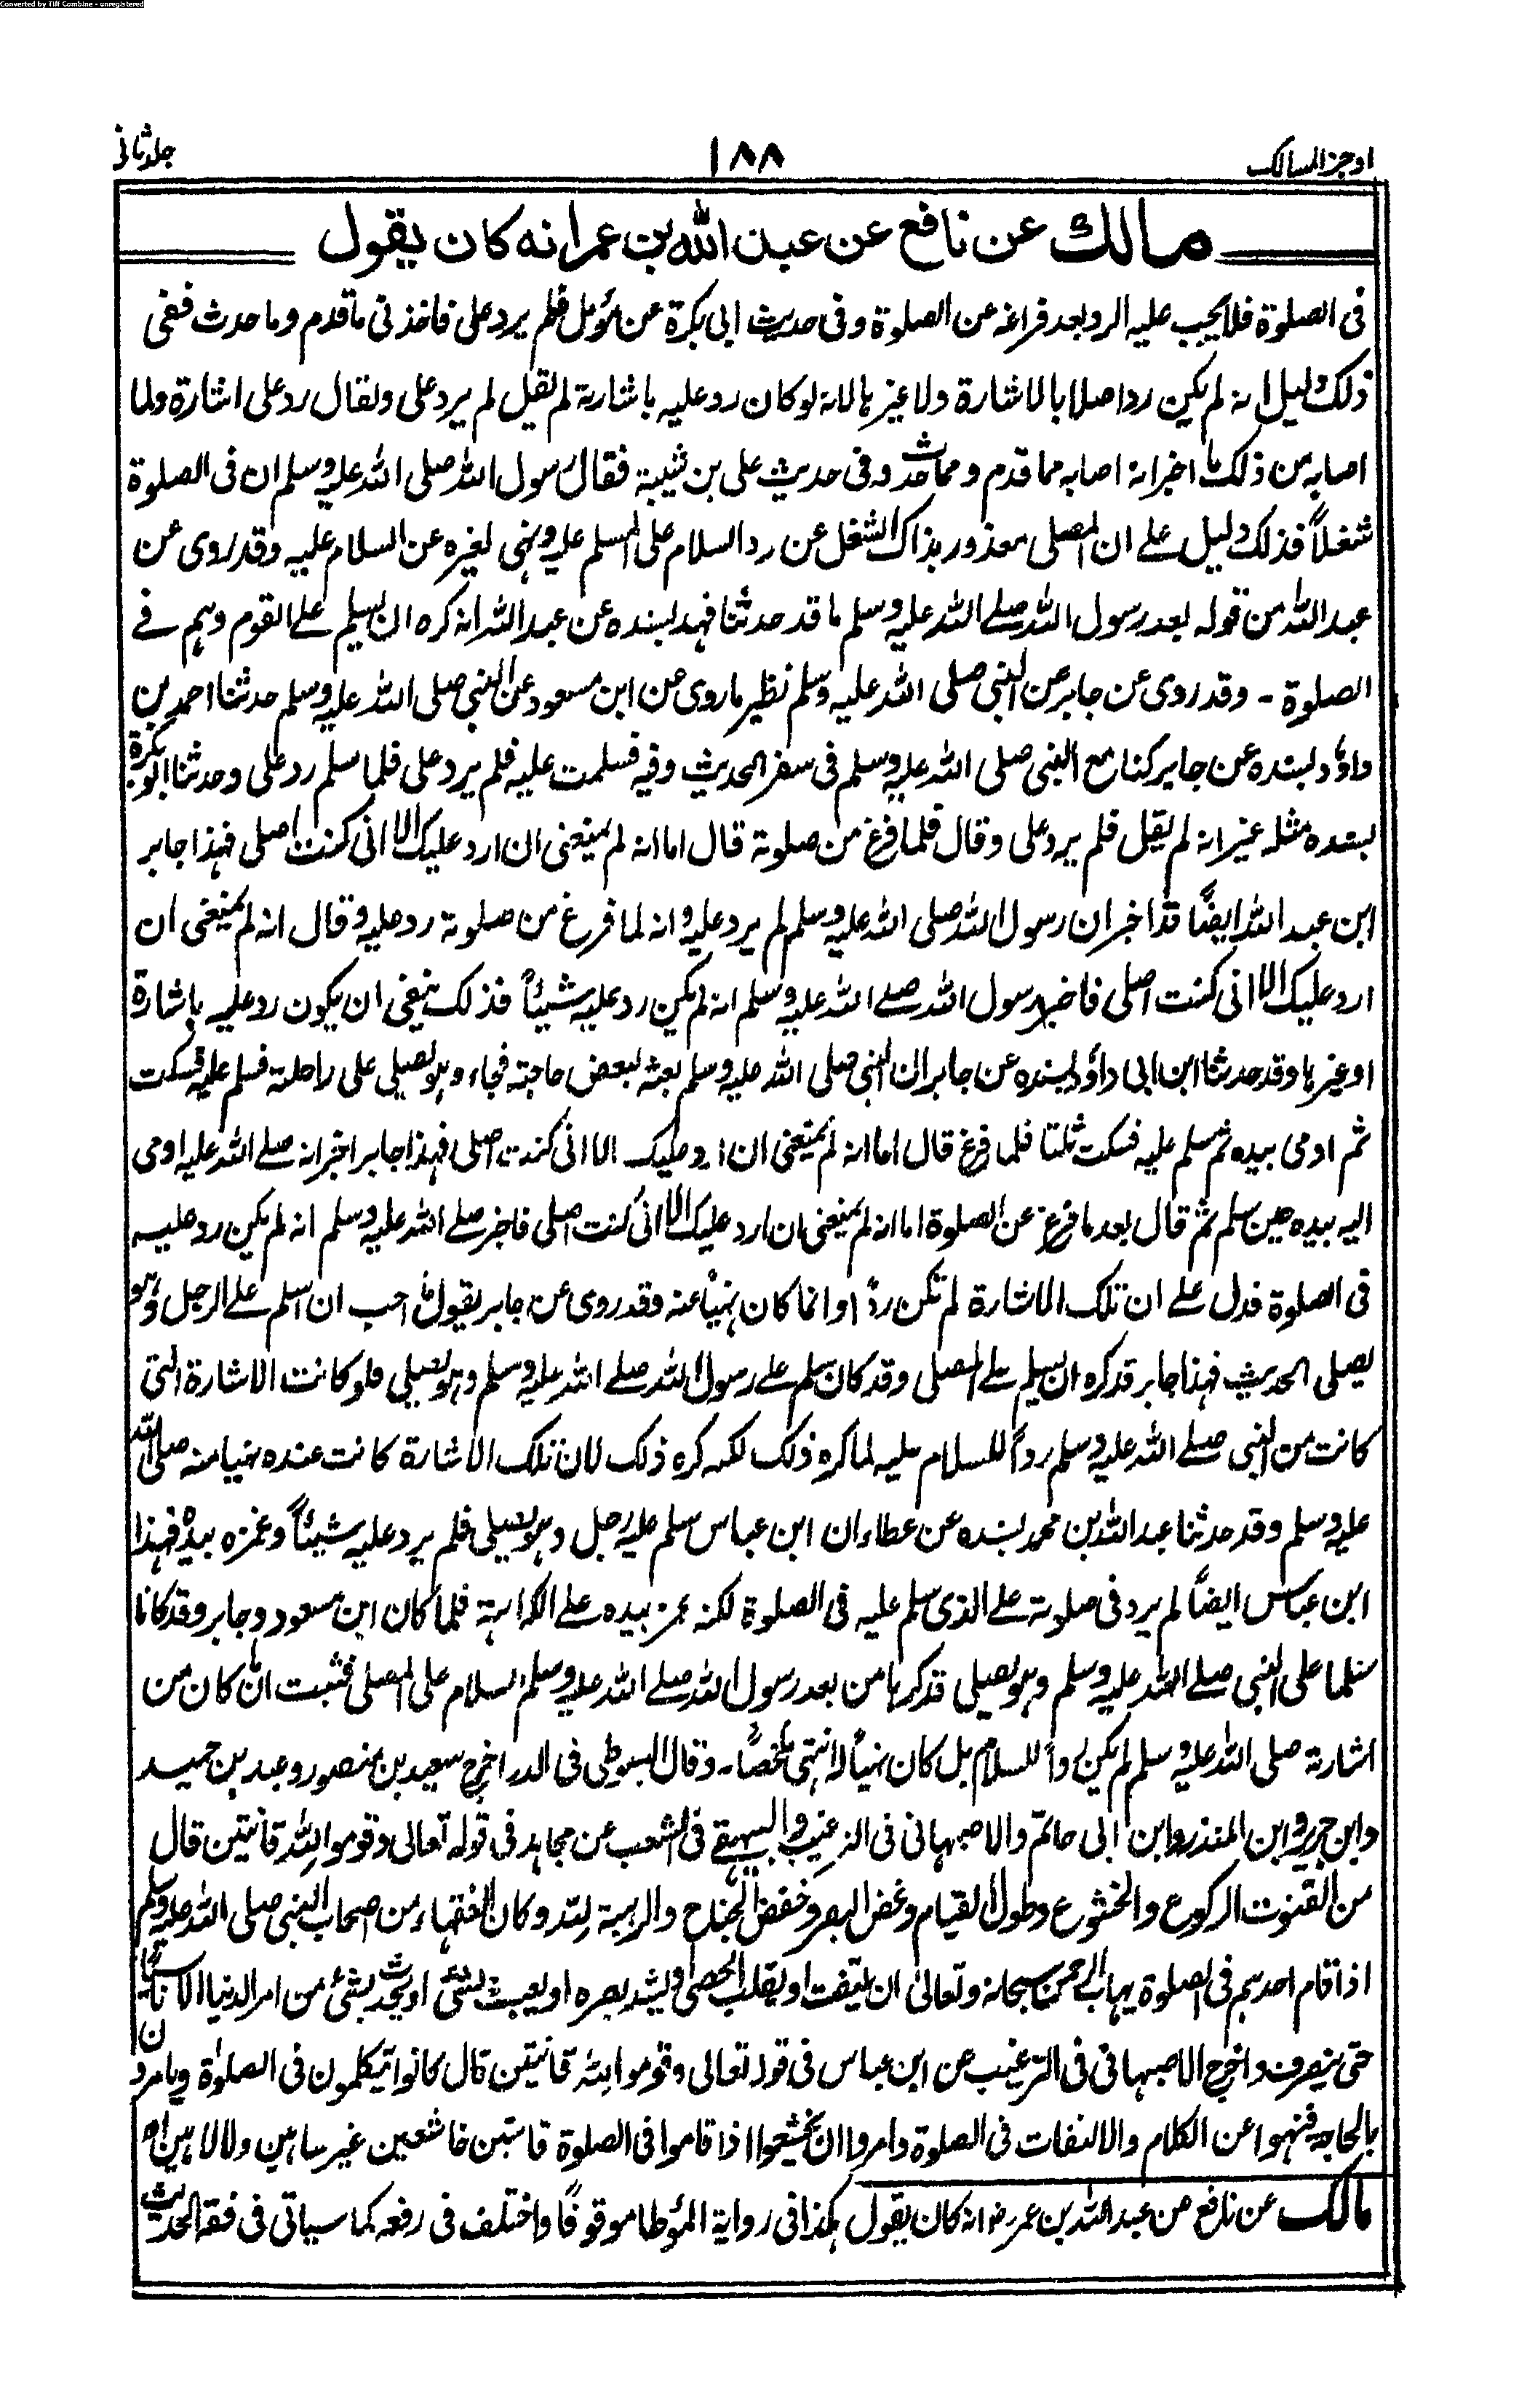 Converted by Tiff Combine - unregistered
اوجز المسالك ١٨٨ جلد ثانی
مالك عن نافع عن عبد الله بن عمر انه كان يقول
فی الصلوة فلا يجب عليه الرد بعد فراغه عن الصلوة وفی حديث ابی بكرة عن مؤمل فلم يرد علی فاخذنی ما قدم وما حدث ففی
ذلك دليل انه لم يكن رد اصلا بالاشارة ولا غيرها لانه لو كان رد عليه باشارته لم يقل لم يرد علی ولقال رد علی اشارة ولما
اصابه من ذلك ما اخبر انه اصابه مما قدم ومما حدث وفی حديث علی بن شيبة فقال رسول الله صلی الله عليه وسلم ان فی الصلوة
شغلاً فذلك دليل علے ان المصلی معذور بذاك الشغل عن رد السلام علی المسلم عليه ونهی لغيره عن السلام عليه وقد روی عن
عبد الله من قوله بعد رسول الله صلے الله عليه وسلم ما قد حدثنا فهد بسنده عن عبد الله انه كره ان يسلم علے القوم وهم فے
الصلوة - وقد روی عن جابر عن النبی صلی الله عليه وسلم نظير ما روی عن ابن مسعود عن النبی صلی الله عليه وسلم حدثنا احمد بن
داؤد بسنده عن جابر كنا مع النبی صلی الله عليه وسلم فی سفر الحديث وفيه فسلمت عليه فلم يرد علی فلما سلم رد علی وحدثنا ابو بكرة
بسنده مثله غير انه لم يقل فلم يرد علی وقال فلما فرغ من صلوته قال اما انه لم يمنعنی ان ارد عليك الا انی كنت اصلی فهذا جابر
ابن عبد الله ايضًا قد اخبر ان رسول الله صلی الله عليه وسلم لم يرد عليه وانه لما فرغ من صلوته رد عليه وقال انه لم يمنعنی ان
ارد عليك الا انی كنت اصلی فاخبر رسول الله صلے الله عليه وسلم انه لم يكن رد عليه شيئاً فذلك ينفی ان يكون رد عليه باشارة
او غيرها وقد حدثنا ابن ابی داؤد بسنده عن جابر ان النبی صلی الله عليه وسلم بعثه لبعض حاجته فجاء وهو يصلی علی راحلته فسلم عليه فسكت
ثم اومی بيده ثم سلم عليه فسكت ثلثا فلما فرغ قال اما انه لم يمنعنی ان ارد عليك الا انی كنت اصلی فهذا جابر اخبر انه صلے الله عليه اومی
اليه بيده حين سلم ثم قال بعد ما فرغ عن الصلوة اما انه لم يمنعنی ان ارد عليك الا انی كنت اصلی فاخبر صلے الله عليه وسلم انه لم يكن رد عليه
فی الصلوة فدل علے ان تلك الاشارة لم تكن رداً وانما كان نهياً عنه وقد روی عن جابر يقول ما احب ان اسلم علے الرجل وهو
يصلی الحديث فهذا جابر قد كره ان يسلم علے المصلی وقد كان سلم علے رسول الله صلے الله عليه وسلم وهو يصلی فلو كانت الاشارة التی
كانت من النبی صلے الله عليه وسلم رداً للسلام عليه لما كره ذلك لكنه كره ذلك لان تلك الاشارة كانت عنده نهيا منه صلی الله
عليه وسلم وقد حدثنا عبد الله بن محمد بسنده عن عطاء ان ابن عباس سلم عليه رجل وهو يصلی فلم يرد عليه شيئاً وغمزه بيده فهذا
ابن عباس ايضًا لم يرد فی صلوته علے الذی سلم عليه فی الصلوة لكنه غمز بيده علے الكراهة فلما كان ابن مسعود وجابر وقد كانا
سلما علی النبی صلے الله عليه وسلم وهو يصلی قد كرها من بعد رسول الله صلے الله عليه وسلم السلام علی المصلی فثبت ان ما كان من
اشارته صلی الله عليه وسلم لم يكن رداً للسلام بل كان نهياً لا انتهی ملخصاً - وقال السيوطی فی الدر اخرج سعيد بن منصور وعبد بن حميد
وابن جرير وابن المنذر وابن ابی حاتم والاصبهانی فی الترغيب والبيهقے فی الشعب عن مجاهد فی قوله تعالی وقوموا لله قانتين قال
من القنوت الركوع والخشوع وطول القيام وغض البصر وخفض الجناح والرهبة لله وكان الفقهاء من اصحاب النبی صلی الله عليه وسلم
اذا قام احدهم فی الصلوة يهاب الرحمن سبحانه وتعالیٰ ان يلتفت او يقلب الحصی او يشد بصره او يعبث بشئی او يحدث بشئ من امر الدنيا الا ناسيًا
حتی ينصرف واخرج الاصبهانی فی الترغيب عن ابن عباس فی قوله تعالی وقوموا لله قانتين قال كانوا يتكلمون فی الصلوٰة ويامرون
بالحاجة فنهوا عن الكلام والالتفات فی الصلوة وامروا ان يخشعوا اذا قاموا فی الصلوة قانتين خاشعين غير ساهين ولا لاهين اه
مالك عن نافع عن عبد الله بن عمر رضـ انه كان يقول هكذا فی رواية المؤطا موقوفًا واختلف فی رفعه كما سياتی فی فقه الحديث